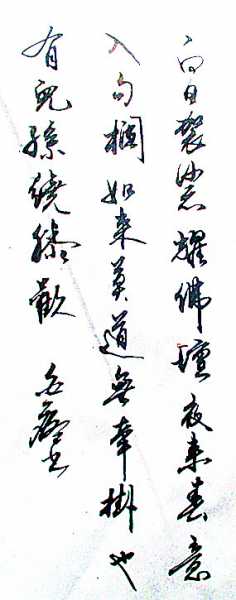 白日袈裟耀佛壇夜来春意
入句欄如来莫道無牽掛也
有兒孫繞膝歡